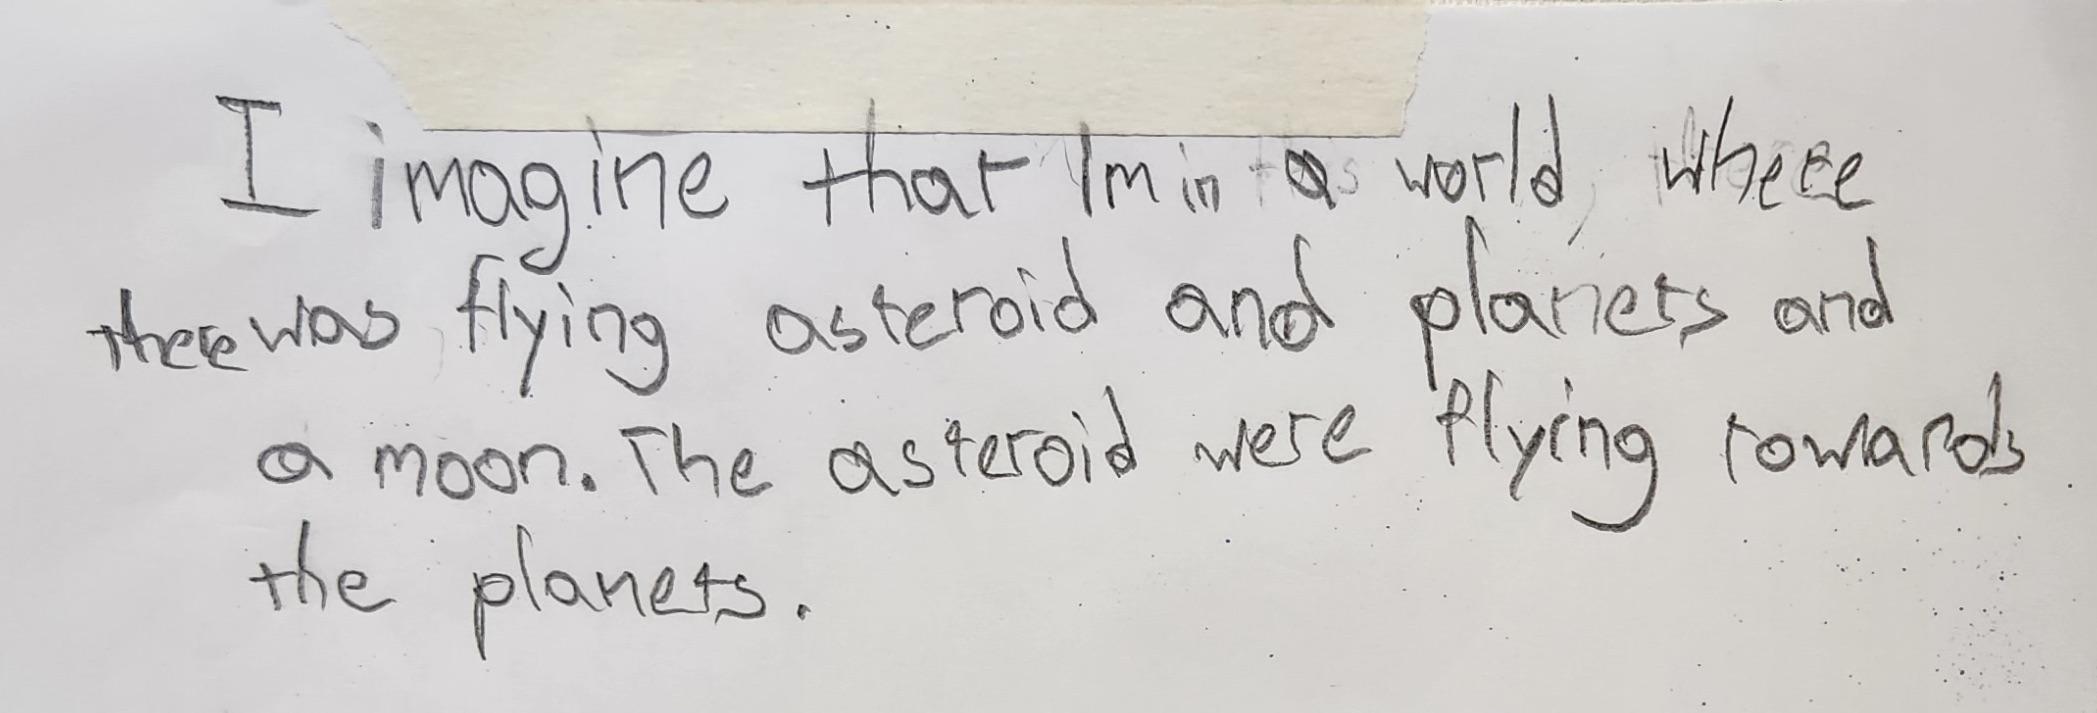 I imagine that Im in a world where
there was flying asteroid and planets and
a moon. The asteroid were flying towards
the planets.